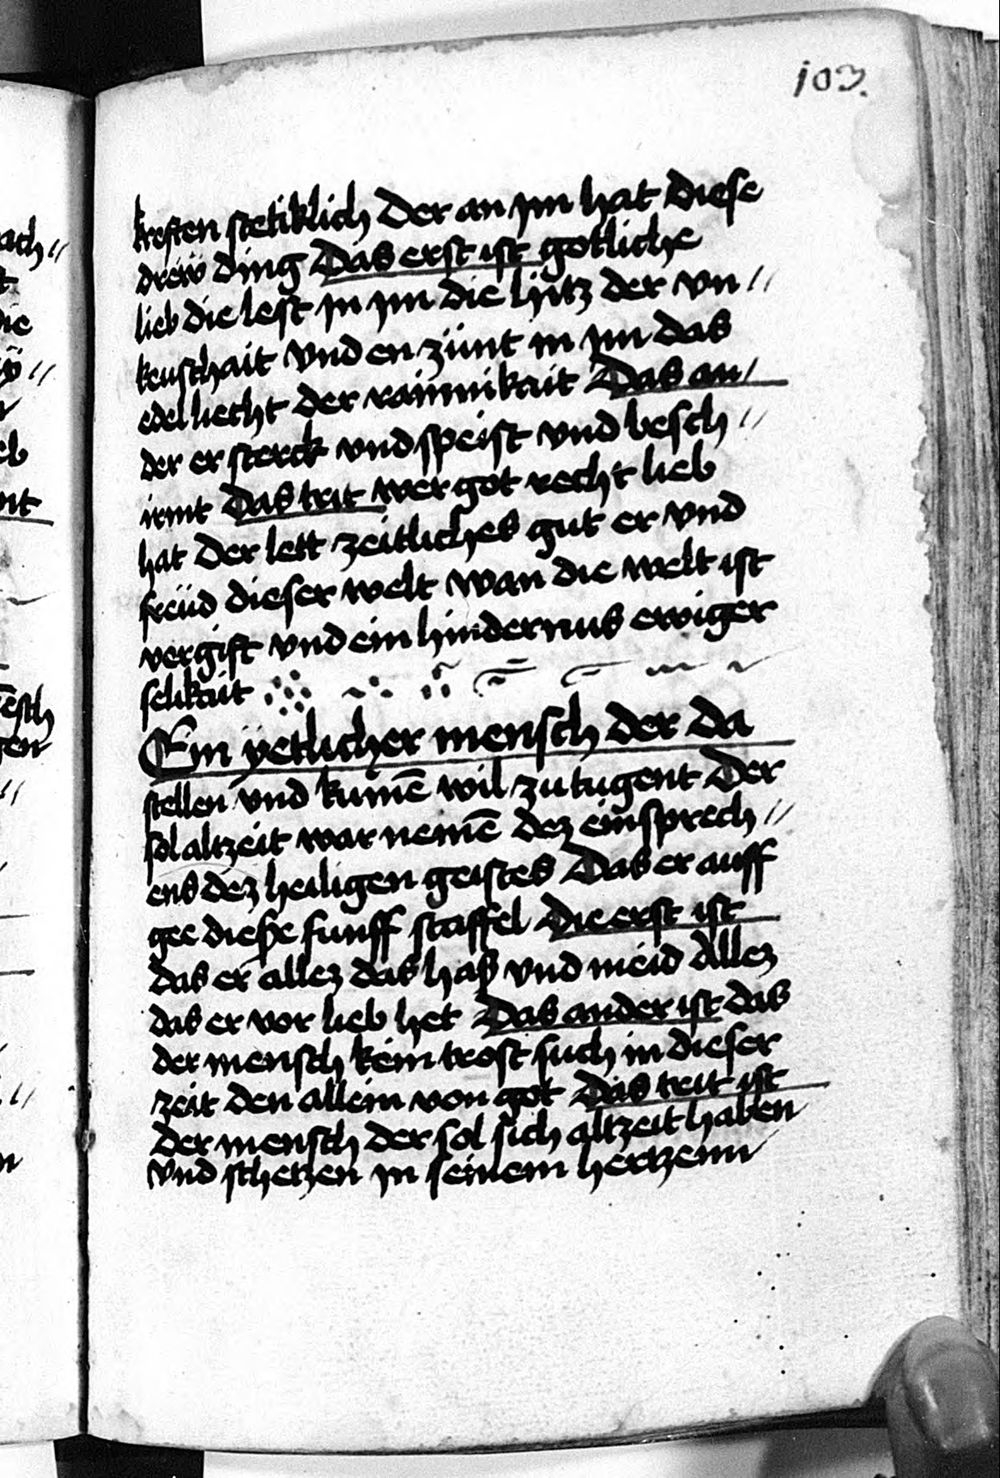 103.
kresten stetiklich Der an ym hat Diese
drew ding Das erst ist gotliche
lieb die lest yn ym die hitz der vn //
keuschait vnd en zünt in ym das
edel liecht der rainnikait Das an /
der er sterck vnd speist vnd besch //
irmt Das trit wer got recht lieb
hat der lett zeitliches gut er vnd
freüd dieser welt wan die welt ist
vergift vnd ein hindernus ewiger
selikait
Ein yetlicher mensch der da
stellen vnd kumē wil zu tugent Der
sol altzeit war nemē dez einsprech //
ens dez heiligen geistes Das er auff
gee dieße funff staffel Die erst ist
das er allez das haß vnd meid Allez
das er vor lieb het Das ander ist das
der mensch kein trost such in dieser
zeit den allein von got Das trit ist
Der mensch der sol sich altzeit haben
vnd schetzen yn seinem hertzenn